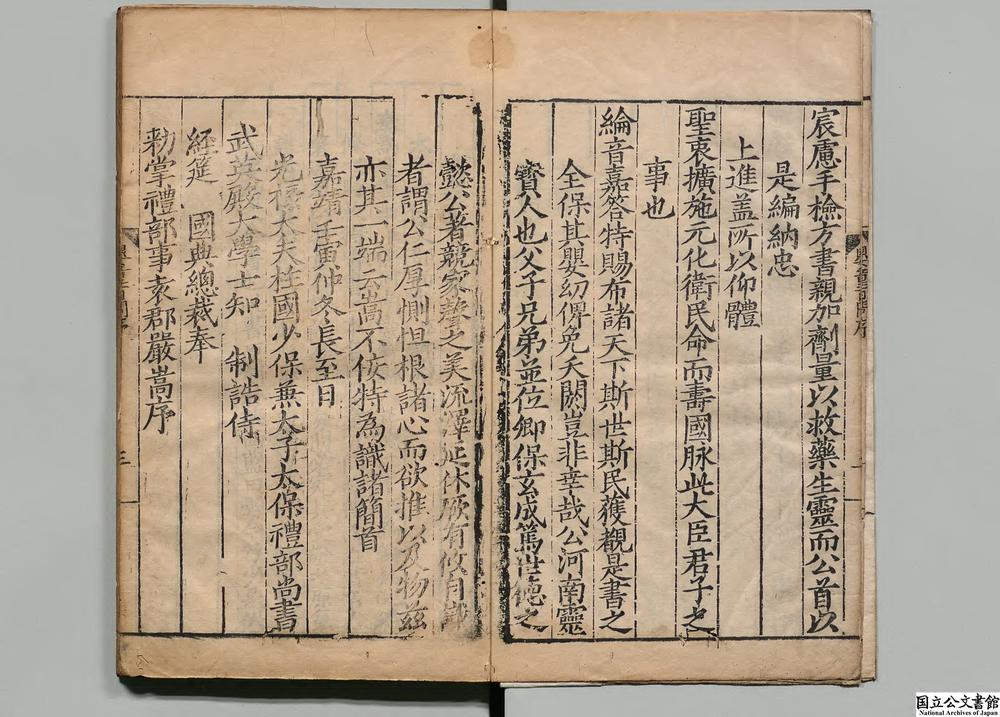 宸慮手檢方書親加劑量以救藥生靈而公首以
是編納忠
上進盖所以仰體
聖衷擴施元化衛民命而壽國脉此大臣君子之
事也
綸音嘉荅特賜布諸天下斯世斯民獲覩是書之
全保其嬰幼俾免夭閼豈非幸哉公河南靈
寶人也父子兄弟並位卿保玄成篤世德之
懿公著競家聲之美流澤延休厥有攸自識
者謂公仁厚惻怛根諸心而欲推以及物兹
亦其一端云嵩不佞特為識諸簡首
嘉靖壬寅仲冬長至日
光祿大夫柱國少保兼太子太保禮部尚書
武英殿大學士知 制誥侍
經筵 國典總裁奉
勑掌禮部事袁郡嚴嵩序
三
国立公文書館
National Archives of Japan